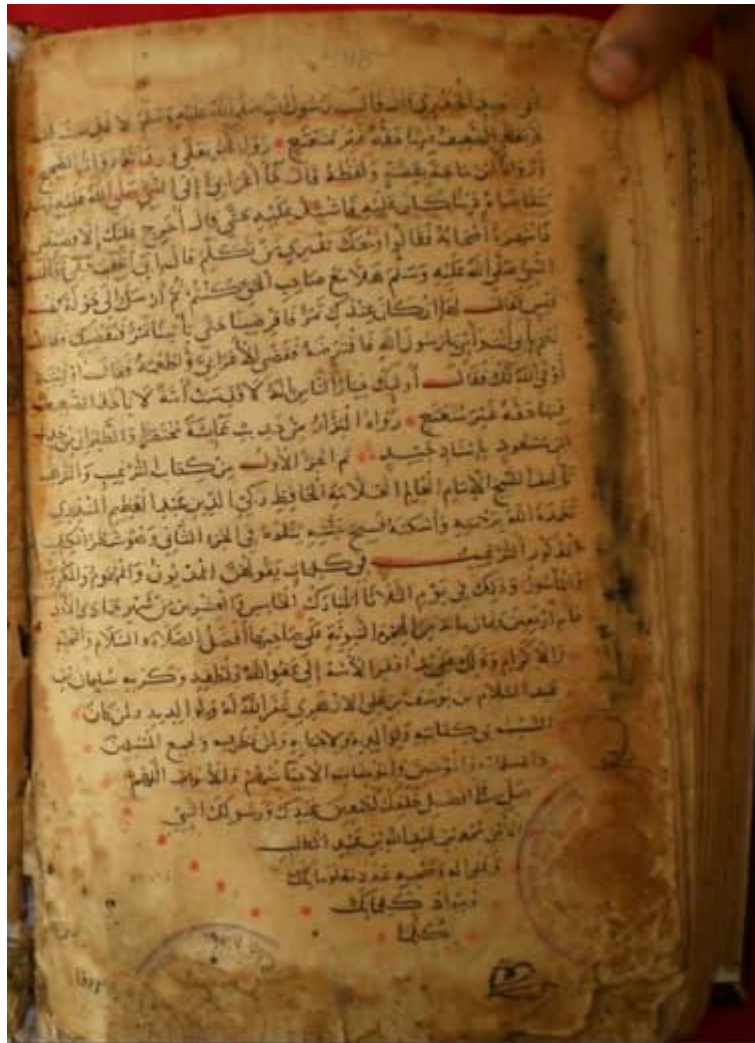 أبو سعيد الخدري قال قال رسول الله صلى الله عليه وسلم لا قدست أمة
لا يعطى الضعيف فيها حقه غير متعتع رواه أبو يعلى ورواته رواة الصحيح
ورواه ابن ماجة بقصة ولفظه قال جاء أعرابي إلى النبي صلى الله عليه وسلم
يتقاضاه دينا كان عليه فاشتد عليه حتى قال أحرج عليك إلا قضيتني
فانتهره أصحابه فقالوا ويحك تدري من تكلم قال إني أطلب حقي فقال
النبي صلى الله عليه وسلم هلا مع صاحب الحق كنتم ثم أرسل إلى خولة بنت
قيس فقال لها إن كان عندك تمر فأقرضينا حتى يأتينا تمر فنقضيك فقالت
نعم بأبي أنت وأمي يا رسول الله فاقترضه فقضى الأعرابي وأطعمه فقال أوفيت
أوفى الله لك فقال أولئك خيار الناس إنه لا قدست أمة لا يأخذ الضعيف
فيها حقه غير متعتع رواه البزار من حديث عائشة مختصرا والطبراني من حديث
ابن مسعود بإسناد جيد تم الجزء الأول من كتاب الترغيب والترهيب
تأليف الشيخ الإمام العالم العلامة الحافظ زكي الدين عبد العظيم المنذري
تغمده الله برحمته وأسكنه فسيح جنته يتلوه في الجزء الثاني
المذكور الترغيب في كلمات يقولهن المديون والمهموم والمكروب
والمأسور وذلك في يوم الثلاثا المبارك الخامس والعشرين من شهر جمادى
أربعين وثمان مائة من الهجرة النبوية على صاحبها أفضل الصلاة والسلام والتحية
والإكرام وذلك على يد أفقر الأمة إلى عفو الله ولطفه وكرمه سليمان بن
عبد السلام بن يوسف بن علي غفر الله له ولوالديه ولمن كان
السبب في كتابته ولوالديه ولمن نظر فيه ولجميع المسلمين
والمسلمات والمؤمنين والمؤمنات الأحياء منهم والأموات اللهم
صل على أفضل خلقك أجمعين عبدك ورسولك النبي
الأمي محمد بن عبد الله بن عبد المطلب
وعلى آله وصحبه عدد معلوماتك
ومداد كلماتك
كلما